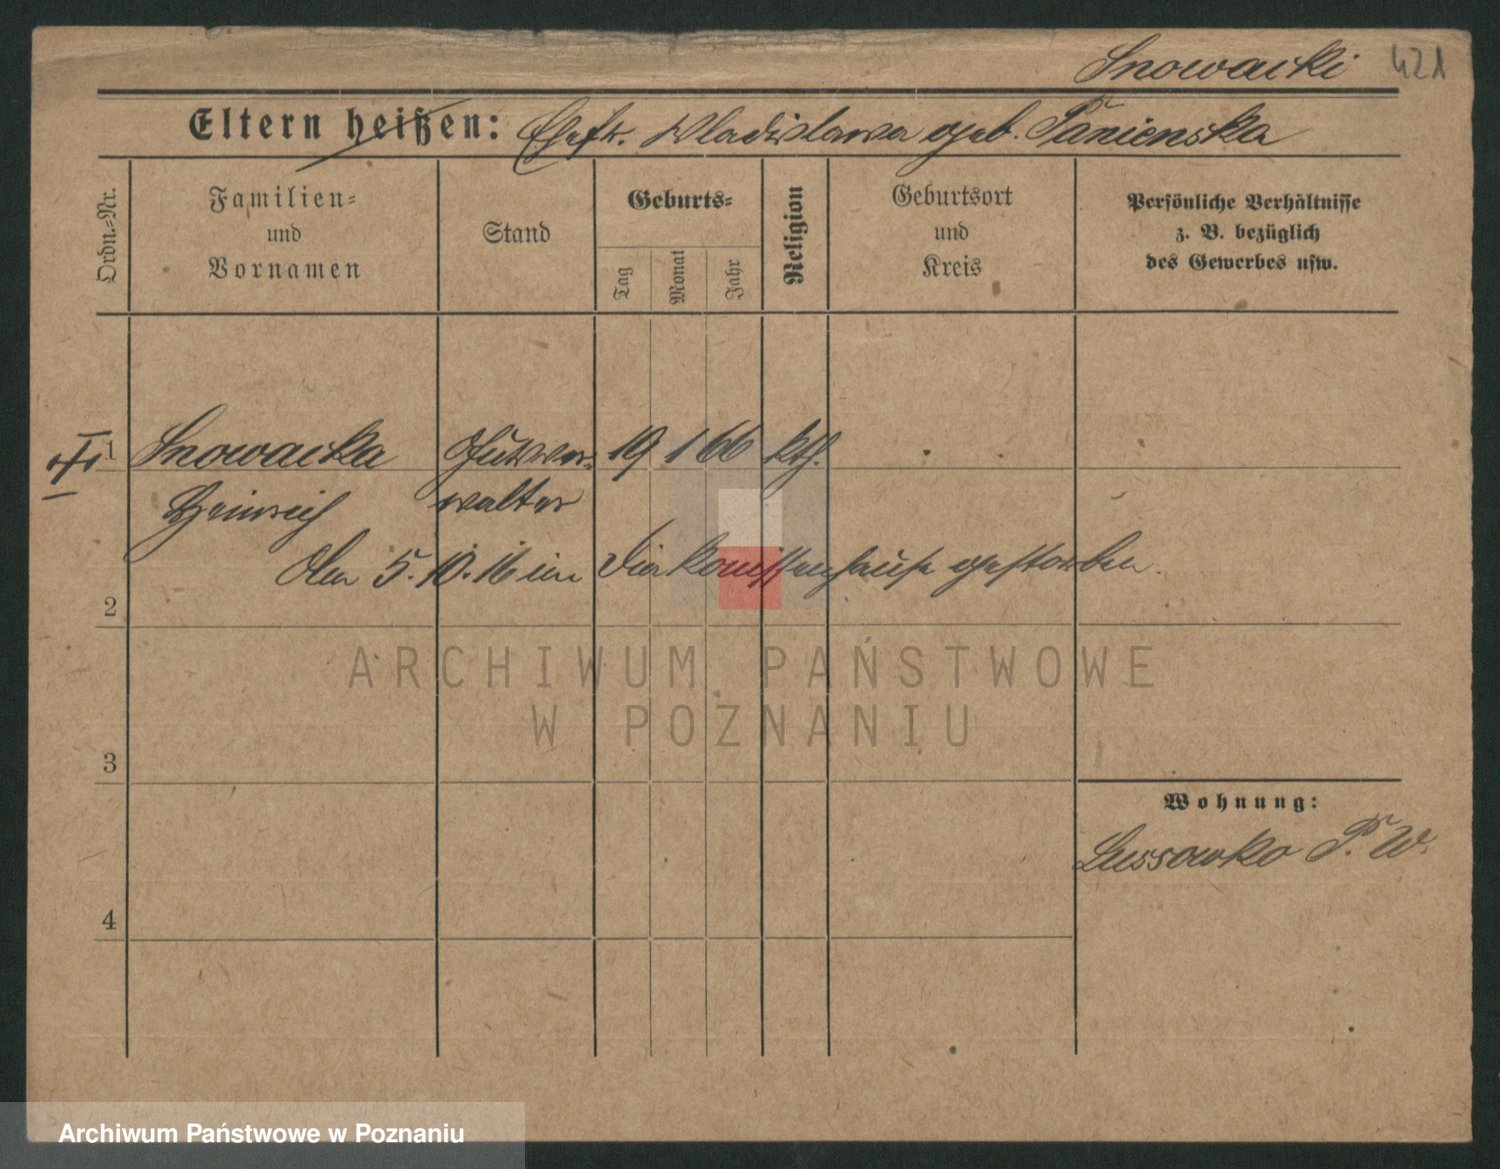 Snowacki 421
Eltern heißen: Ehefr. Wladislawa geb. Panienska
Ordn.-Nr.
Familien-
und
Vornamen
Stand
Geburts-
Tag
Monat
Jahr
Religion
Geburtsort
und
Kreis
Persönliche Verhältnisse
z. B. bezüglich
des Gewerbes usw.
1 Snowacka Gutsver- 19 1 66 kth.
Heinrich walter
Am 5.10.16 im Diakonissenhause gestorben.
2
ARCHIWUM PAŃSTWOWE
W POZNANIU
3
Wohnung:
Lussowko P. W.
4
Archiwum Państwowe w Poznaniu